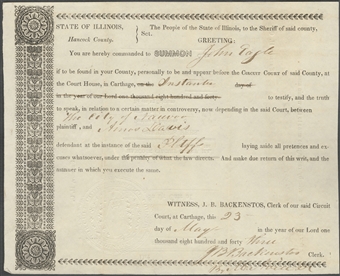 STATE OF ILLINOIS,
Hancock County. Sct. The People of the State of Illinois, to the Sheriff of said county,
GREETING:
You are hereby commanded to SUMMON John Eagle
if to be found in your County, personally to be and appear before the CIRCUIT COURT of said County, at
the Court House, in Carthage, on the Instanter day of
in the year of our Lord one thousand eight hundred and forty- to testify, and the truth
to speak, in relation to a certain matter in controversy, now depending in the said Court, between
The City of Nauvoo
plaintiff, and Amos Davis
defendant at the instance of the said Plffs laying aside all pretences and ex
cuses whatsoever, under the penalty of what the law directs. And make due return of this writ, and the
manner in which you execute the same.
WITNESS, J. B. BACKENSTOS, Clerk of our said Circuit
Court, at Carthage, this 23
day of May in the year of our Lord one
thousand eight hundred and forty three
J B Backenstos Clerk.